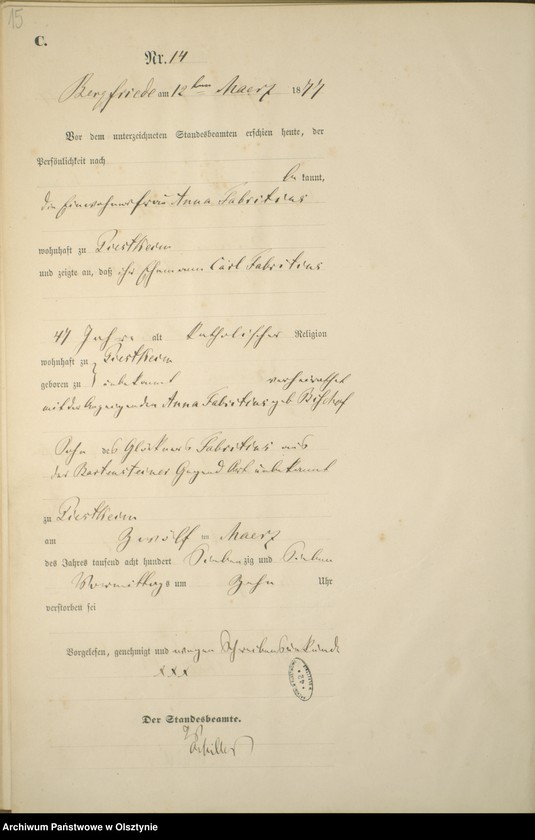 15
C.
Nr. 14
Bergfriede am 12ten Maerz 1877
Vor dem unterzeichneten Standesbeamten erschien heute, der
Persönlichkeit nach
be kannt,
die Einwohnerfrau Anna Fabritius
wohnhaft zu Piestkeim
und zeigte an, daß ihr Ehemann Carl Fabritius
47 Jahre alt katholischer Religion
wohnhaft zu Piestkeim
geboren zu unbekannt verheirathet
mit der Anzeigenden Anna Fabritius geb Bischof
Sohn des Glöckners Fabritius aus
der Bartensteiner Gegend Ort unbekannt
zu Piestkeim
am Zwölf ten Maerz
des Jahres tausend acht hundert Sieben zig und Sieben
Vormittags um Zehn Uhr
verstorben sei
Vorgelesen, genehmigt und wegen Schreibensunkunde
xxx
42
Der Standesbeamte.
Schiller
Archiwum Państwowe w Olsztynie